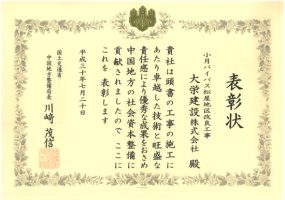 表彰状
小月バイパス松屋地区改良工事
大栄建設株式会社 殿
貴社は頭書の工事の施工に
あたり卓越した技術と旺盛な
責任感により優秀な成果をおさめ
中国地方の社会資本整備に
貢献されましたので ここに
これを 表彰します
平成二十年七月二十日
国土交通省
中国地方整備局長
川﨑 茂信